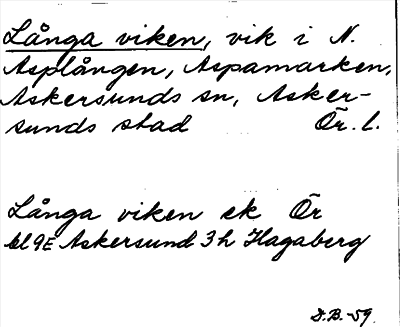 Långa viken, vik i N.
Asplången, Aspamarken,
Askersunds sn, Asker-
sunds stad Ör. l.
Långa viken ek Ör
bl 9E Askersund 3h Hagaberg
S.B.-59.